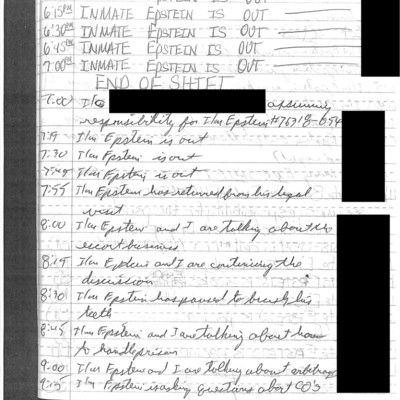 6:15PM INMATE EPSTEIN IS OUT
6:30PM INMATE EPSTEIN IS OUT
6:45PM INMATE EPSTEIN IS OUT
7:00PM INMATE EPSTEIN IS OUT
END OF SHIFT
7:00 I/Co assuming
responsibility for I/m Epstein #76318-054
I/m Epstein is out
7:30 I/m Epstein is out
I/m Epstein is out
7:55 I/m Epstein has returned from his legal
visit
8:00 I/m Epstein and I are talking about the
escort business
8:15 I/m Epstein and I are continuing the
discussion
8:30 I/m Epstein has paused to brush his
teeth
8:45 I/m Epstein and I are talking about how
to handle prison
9:00 I/m Epstein and I are talking about arbitrage
9:15 I/m Epstein is asking questions about CO's